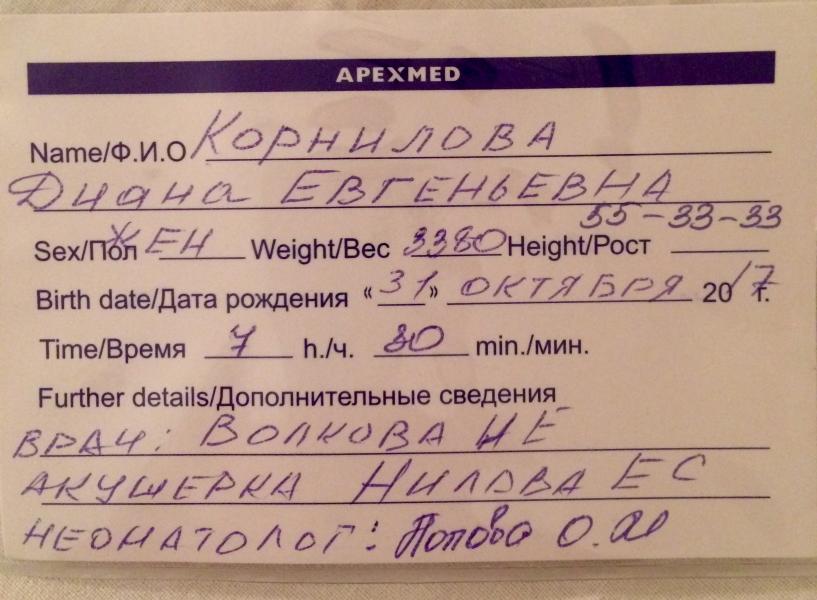 APEXMED
Name/Ф.И.О КОРНИЛОВА
ДИАНА ЕВГЕНЬЕВНА
55-33-33
Sex/Пол ЖЕН Weight/Вес 3380 Height/Рост
Birth date/Дата рождения «31» ОКТЯБРЯ 2017 г.
Time/Время 7 h./ч. min./мин.
Further details/Дополнительные сведения
ВРАЧ: ВОЛКОВА НЕ
АКУШЕРКА НИЛОВА ЕС
НЕОНАТОЛОГ: Попова О.